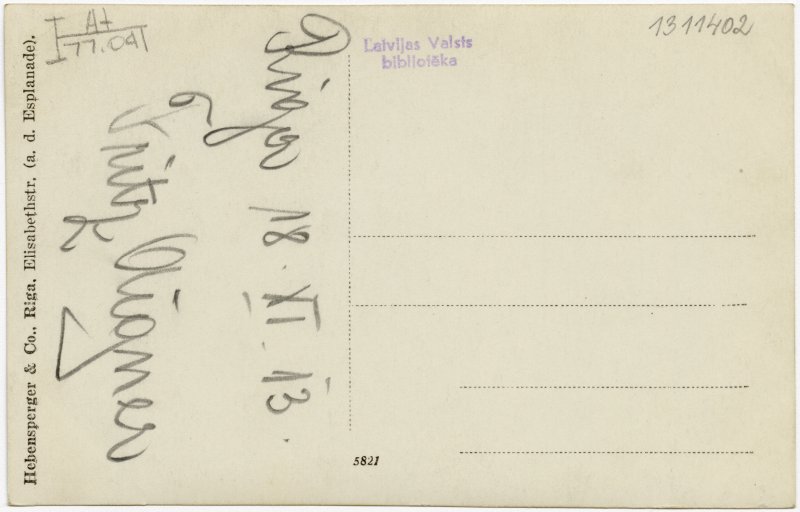 A7
77.04
1311402
Latvijas Valsts
bibliotēka
Hebensperger & Co., Riga, Elisabethstr. (a. d. Esplanade).
Riga
18. XI. 13.
Fritz
5821